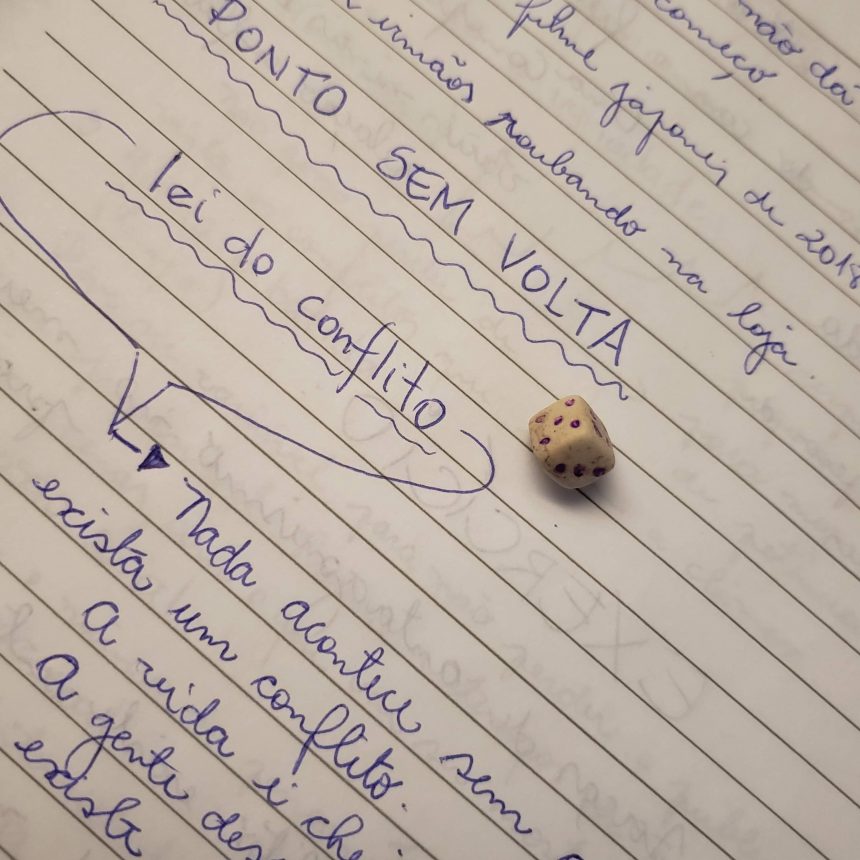 não dá
começo
filme japonês de 2018
irmãos roubando na loja.
PONTO SEM VOLTA
lei do conflito
Nada acontece sem
exista um conflito.
A vida é
A gente
exista